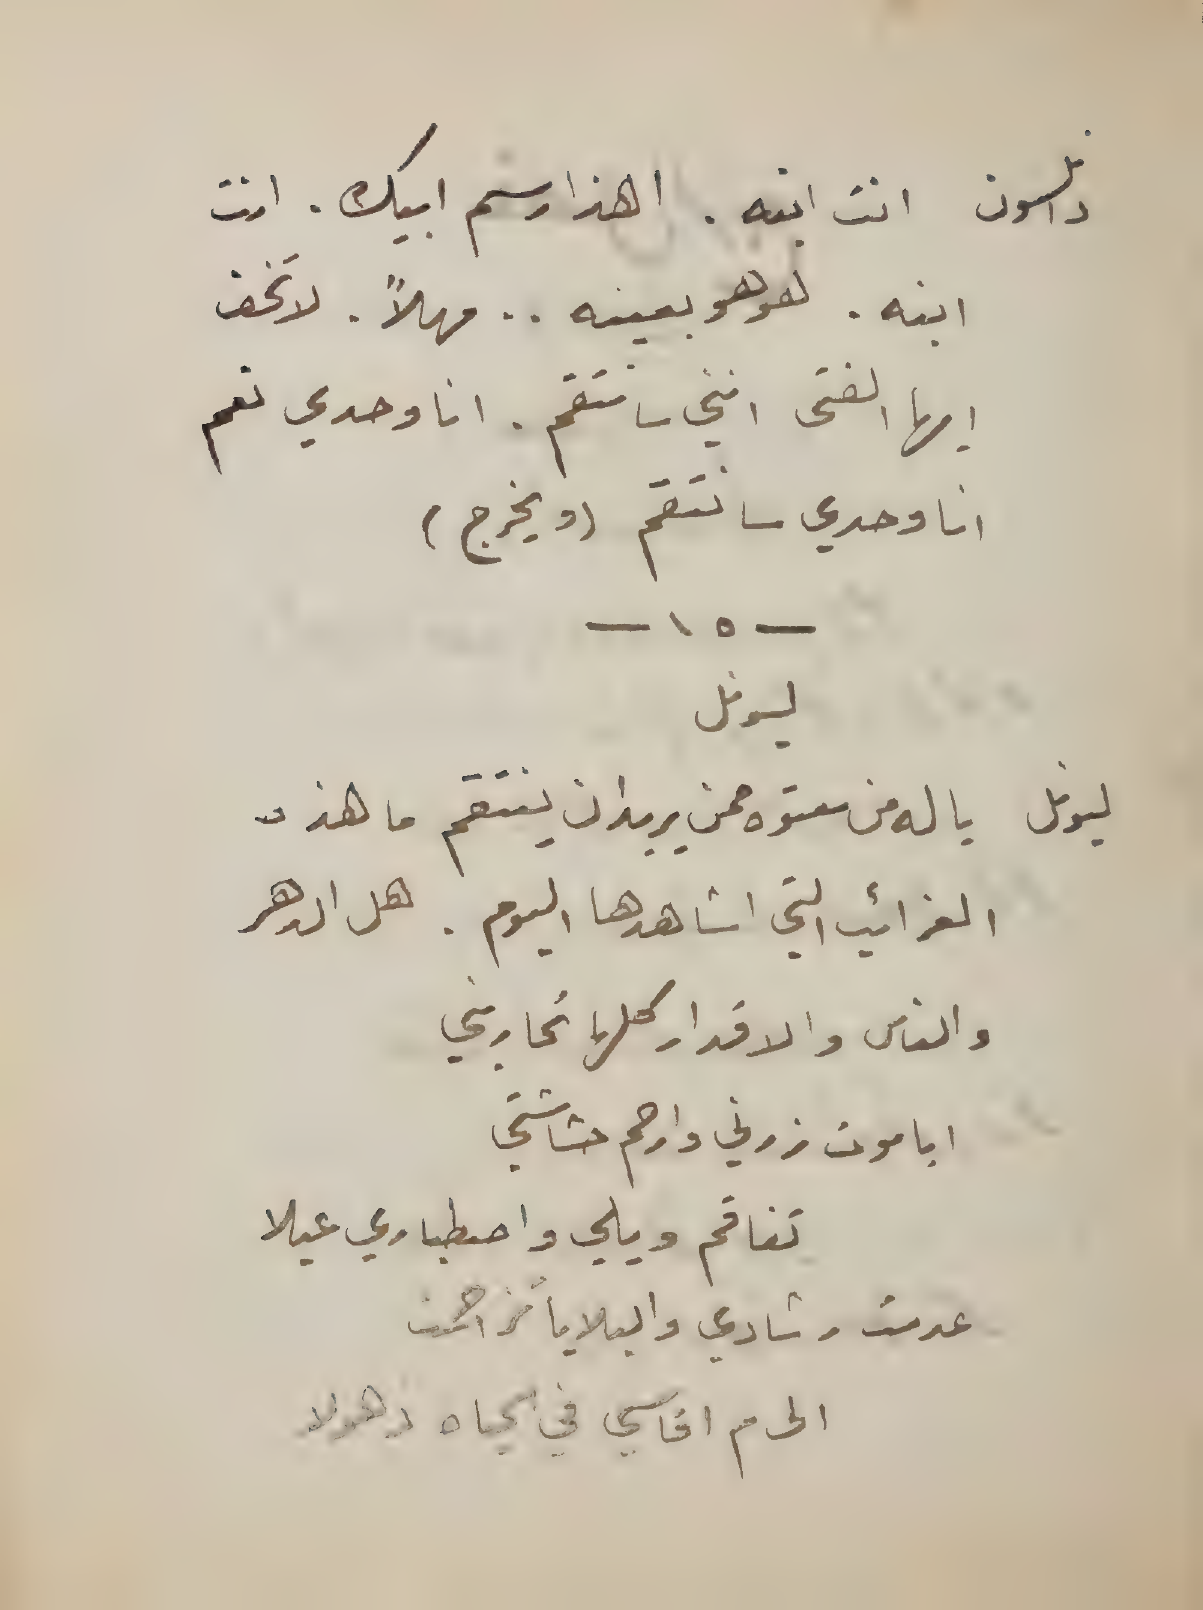 انت ابنه . اهذا رسم ابيك . انت
ابنه . هو هو بعينه .. مهلاً . لا تخف
ايها الفتى انني سانتقم . انا وحدي نعم
انا وحدي سانتقم (ويخرج)
— ١٥ —
ليونل
ليونل يا له من معتوه ممن يريد ان ينتقم ما هذه
الغرائب التي اشاهدها اليوم . هل الدهر
والناس والاقدار كلها تحاربني
ايا موت زرني وارحم حشاشتي
تفاقم ويلي واصطباري عيلا
عدمت رشادي والبلايا تزاحمت
الى م اقاسي في الحياه ذهولا